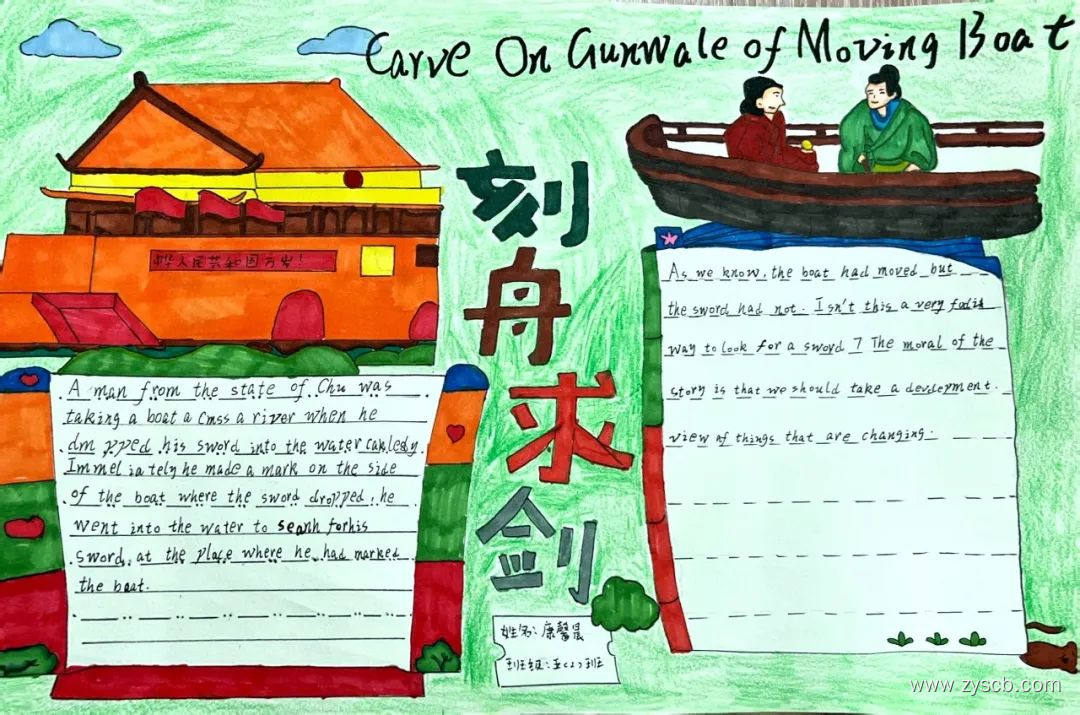 Carve On Gunwale of Moving Boat
刻舟求剑
华人民共和国万岁!
A man from the state of Chu was
taking a boat a cmss a river when he
dm pped his sword into the water cakledy.
Immel ia tely he made a mark on the side
of the boat where the sword dropped, he
went into the water to seanh forhis
sword, at the place where he had marked
the boat.
As we know, the boat had moved but
the sword had not. Isn't this a very
way to look for a sword ? The moral of the
story is that we should take a devdepment.
view of things that are changing.
姓名:康馨
班级:五(2)班
www.zyscb.com